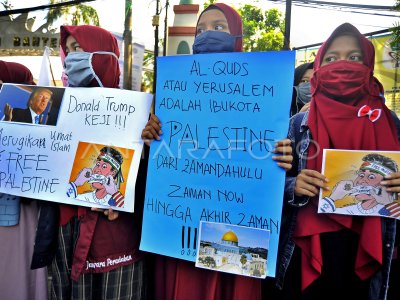 Donald Trump
KEJI !!!
Merugikan Umat
Islam
FREE
PALESTINE
AL-QUDS
ATAU YERUSALEM
ADALAH IBUKOTA
PALESTINE
DARI ZAMANDAHULU
ZAMAN NOW
HINGGA AKHIR ZAMAN
!!!
ANTARAFOTO